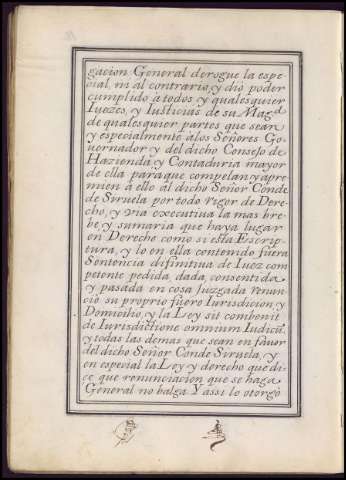 gacion General derogue la espe
cial, ni al contrario, y dio poder
cumplido à todos y qualesquier
Iuezes, y Iusticias de su Magd.
de qualesquier partes que sean
y especialmente à los Señores Go
vernador y del dicho Consejo de
Hazienda y Contaduria mayor
de ella para que compelan y apre
mien à ello al dicho Señor Conde
de Siruela por todo rigor de Dere
cho, y via executiva la mas bre
be y sumaria que haya lugar
en Derecho como si esta Escrip
tura, y lo en ella contenido fuera
Sentencia difinitiva de Iuez com
petente pedida, dada, consentida
y pasada en cosa Iuzgada renun
cio su proprio fuero Iurisdicion y
Domicilio, y la Ley sit combenit
de Iurisdictione omnium Iudicũ
y todas las demas que sean en favor
del dicho Señor Conde Siruela, y
en especial la Ley y derecho que di
ce que renunciacion que se haga
General no balga Y assi lo otorgò